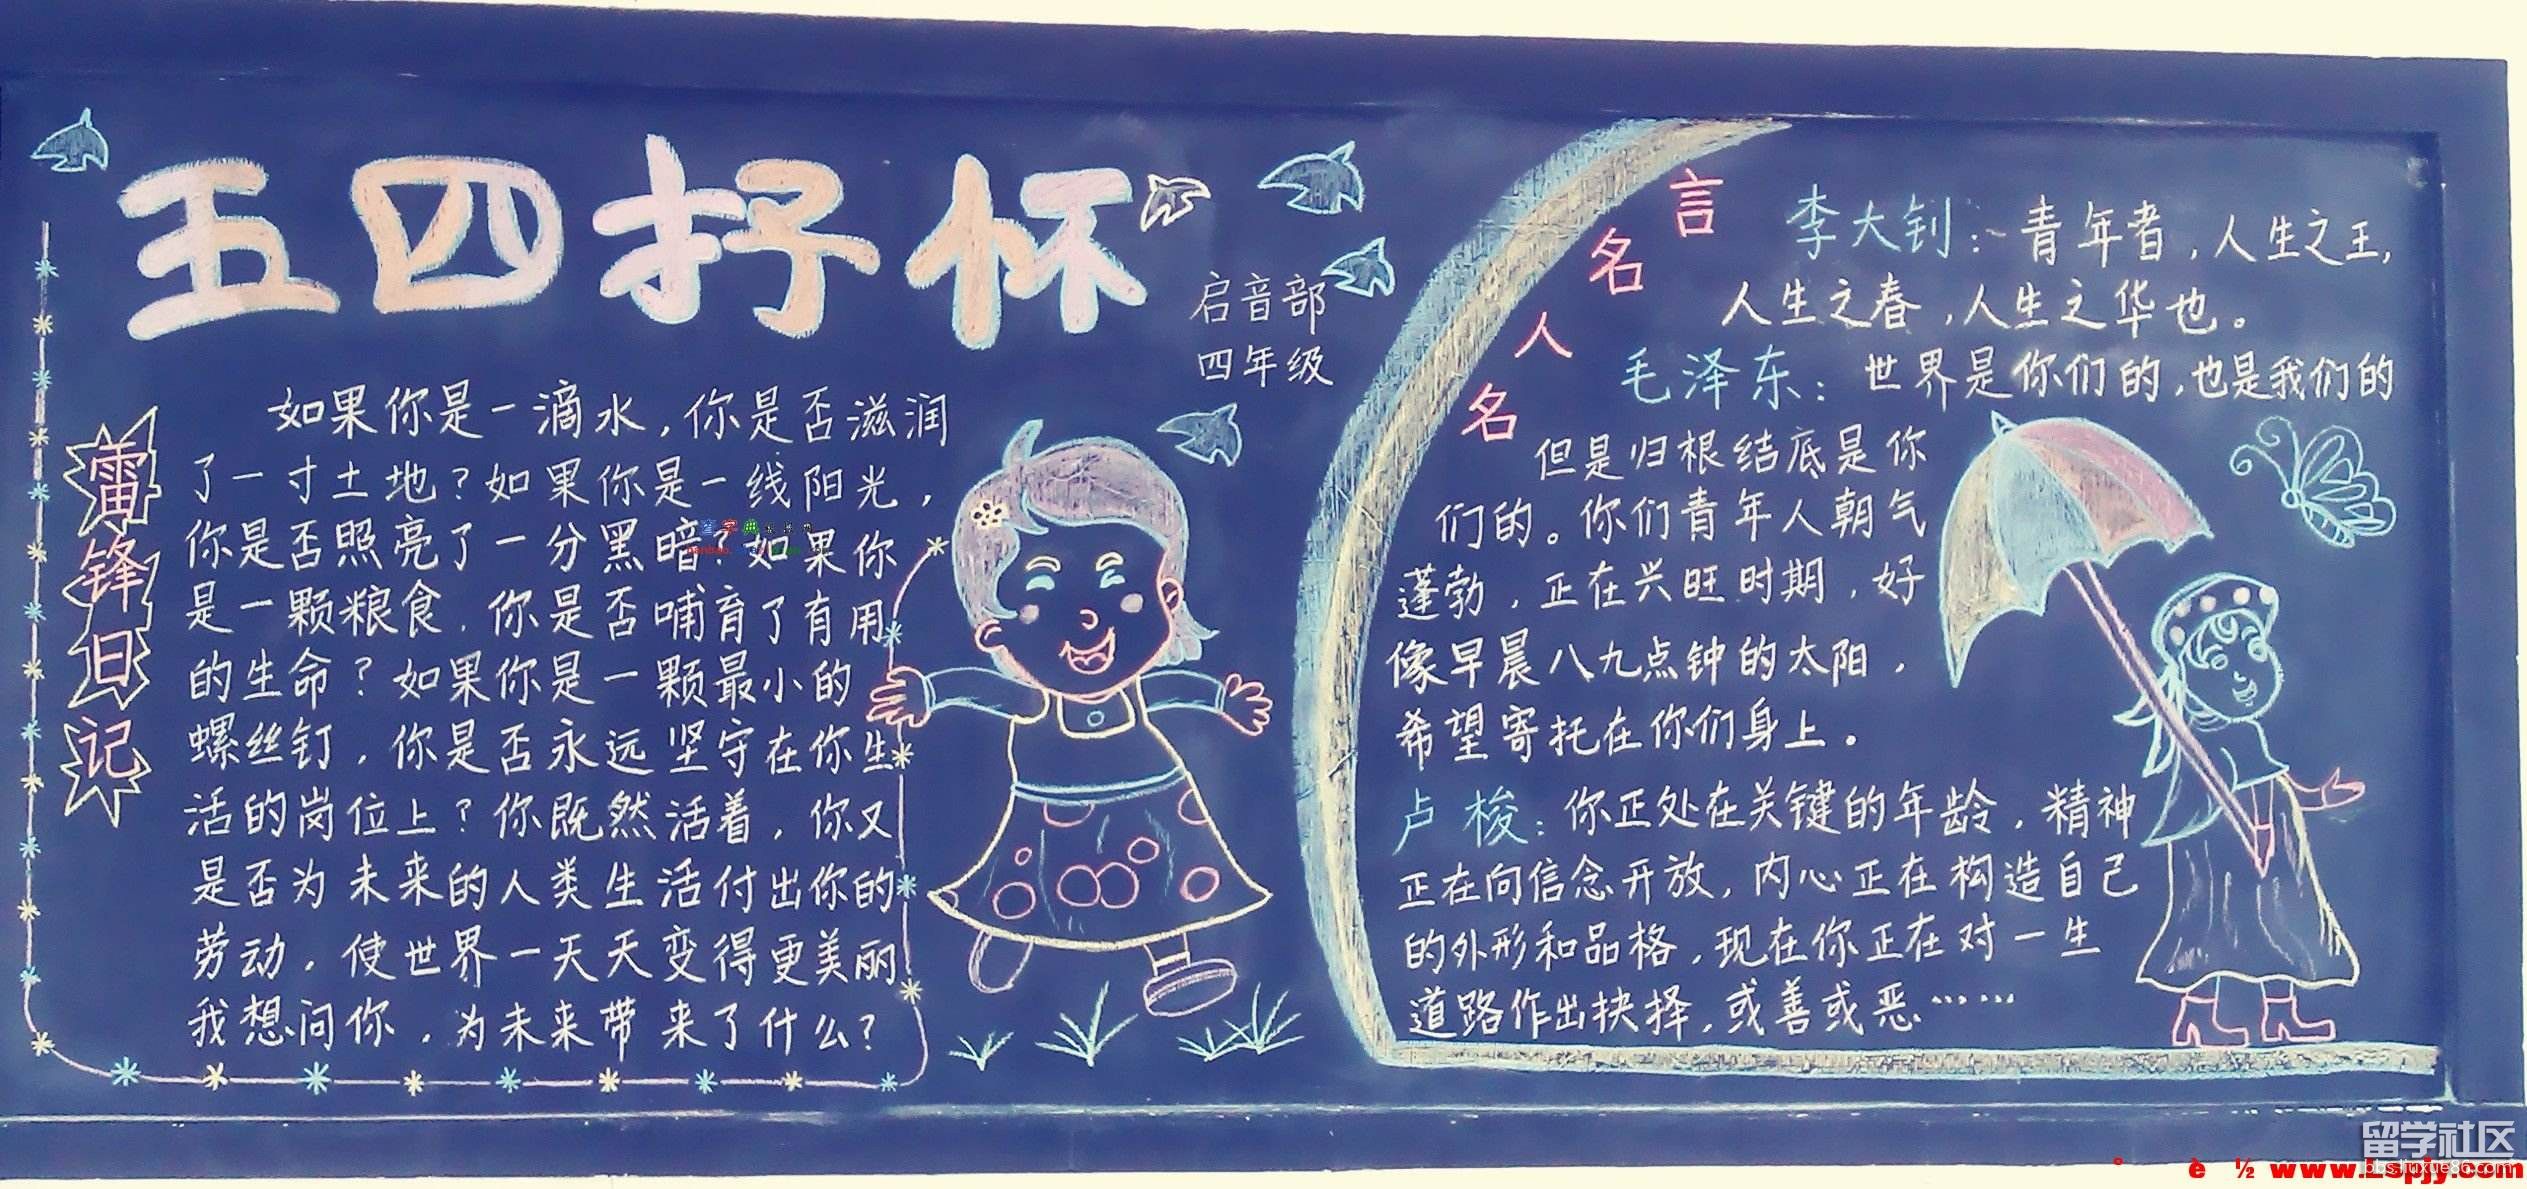 五四抒怀
启音部
四年级
雷锋日记
如果你是一滴水，你是否滋润
了一寸土地？如果你是一线阳光，
你是否照亮了一分黑暗？如果你
是一颗粮食，你是否哺育了有用
的生命？如果你是一颗最小的
螺丝钉，你是否永远坚守在你生
活的岗位上？你既然活着，你又
是否为未来的人类生活付出你的
劳动，使世界一天天变得更美丽
我想问你，为未来带来了什么？
名人名言
李大钊：青年者，人生之王，
人生之春，人生之华也。
毛泽东：世界是你们的，也是我们的
但是归根结底是你
们的。你们青年人朝气
蓬勃，正在兴旺时期，好
像早晨八九点钟的太阳，
希望寄托在你们身上。
卢梭：你正处在关键的年龄，精神
正在向信念开放，内心正在构造自己
的外形和品格，现在你正在对一生
道路作出抉择，或善或恶……
留学社区
bbs.liuxue86.com
° è ½ www.Lspjy.com